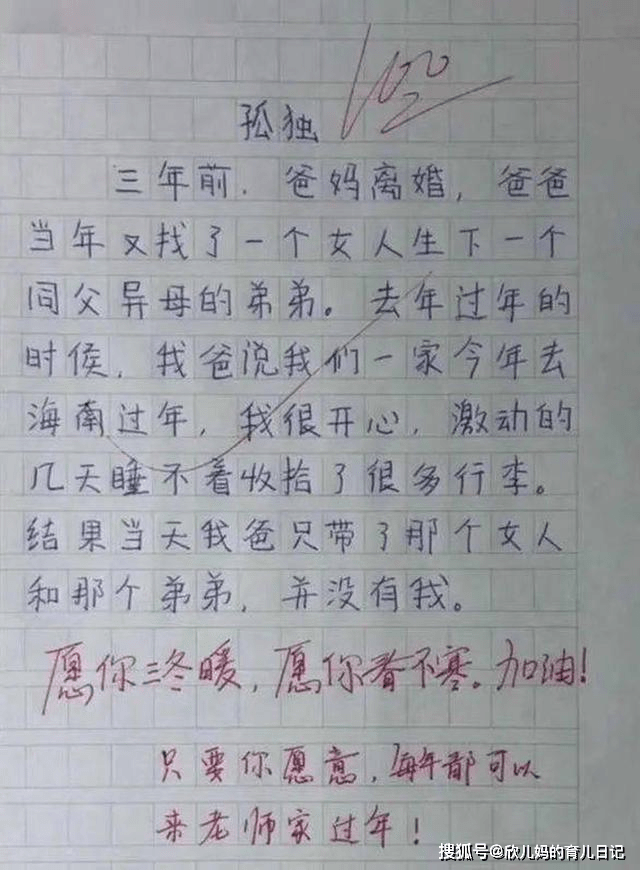 100
孤独
三年前．爸妈离婚，爸爸
当年又找了一个女人生下一个
同父异母的弟弟。去年过年的
时候，我爸说我们一家今年去
海南过年，我很开心，激动的
几天睡不着收拾了很多行李。
结果当天我爸只带了那个女人
和那个弟弟，并没有我。
愿你三冬暖，愿你春不寒。加油！
只要你愿意，每年都可以
来老师家过年！
搜狐号@欣儿妈的育儿日记